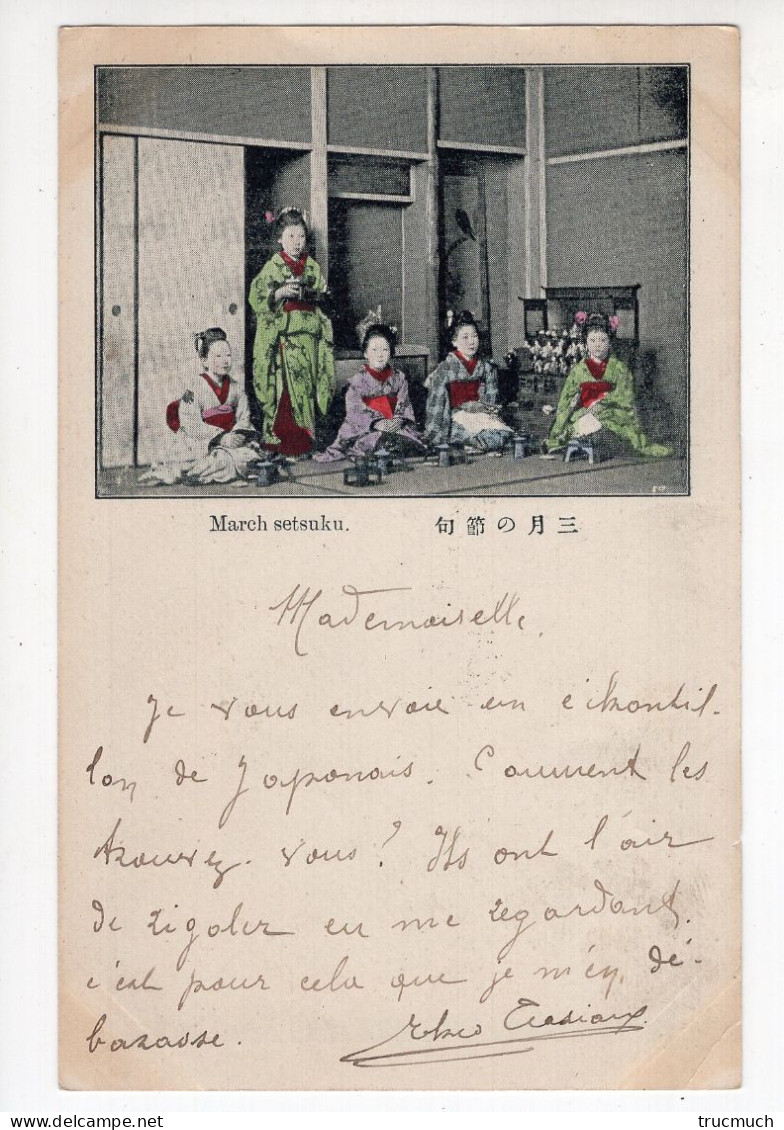 March setsuku.
三月の節句
Mademoiselle,
Je vous envoie un échantil-
lon de Japonais. Comment les
trouvez-vous? Ils ont l'air
de rigoler en me regardant.
c'est pour cela que je m'en dé-
barasse.
trucmuch